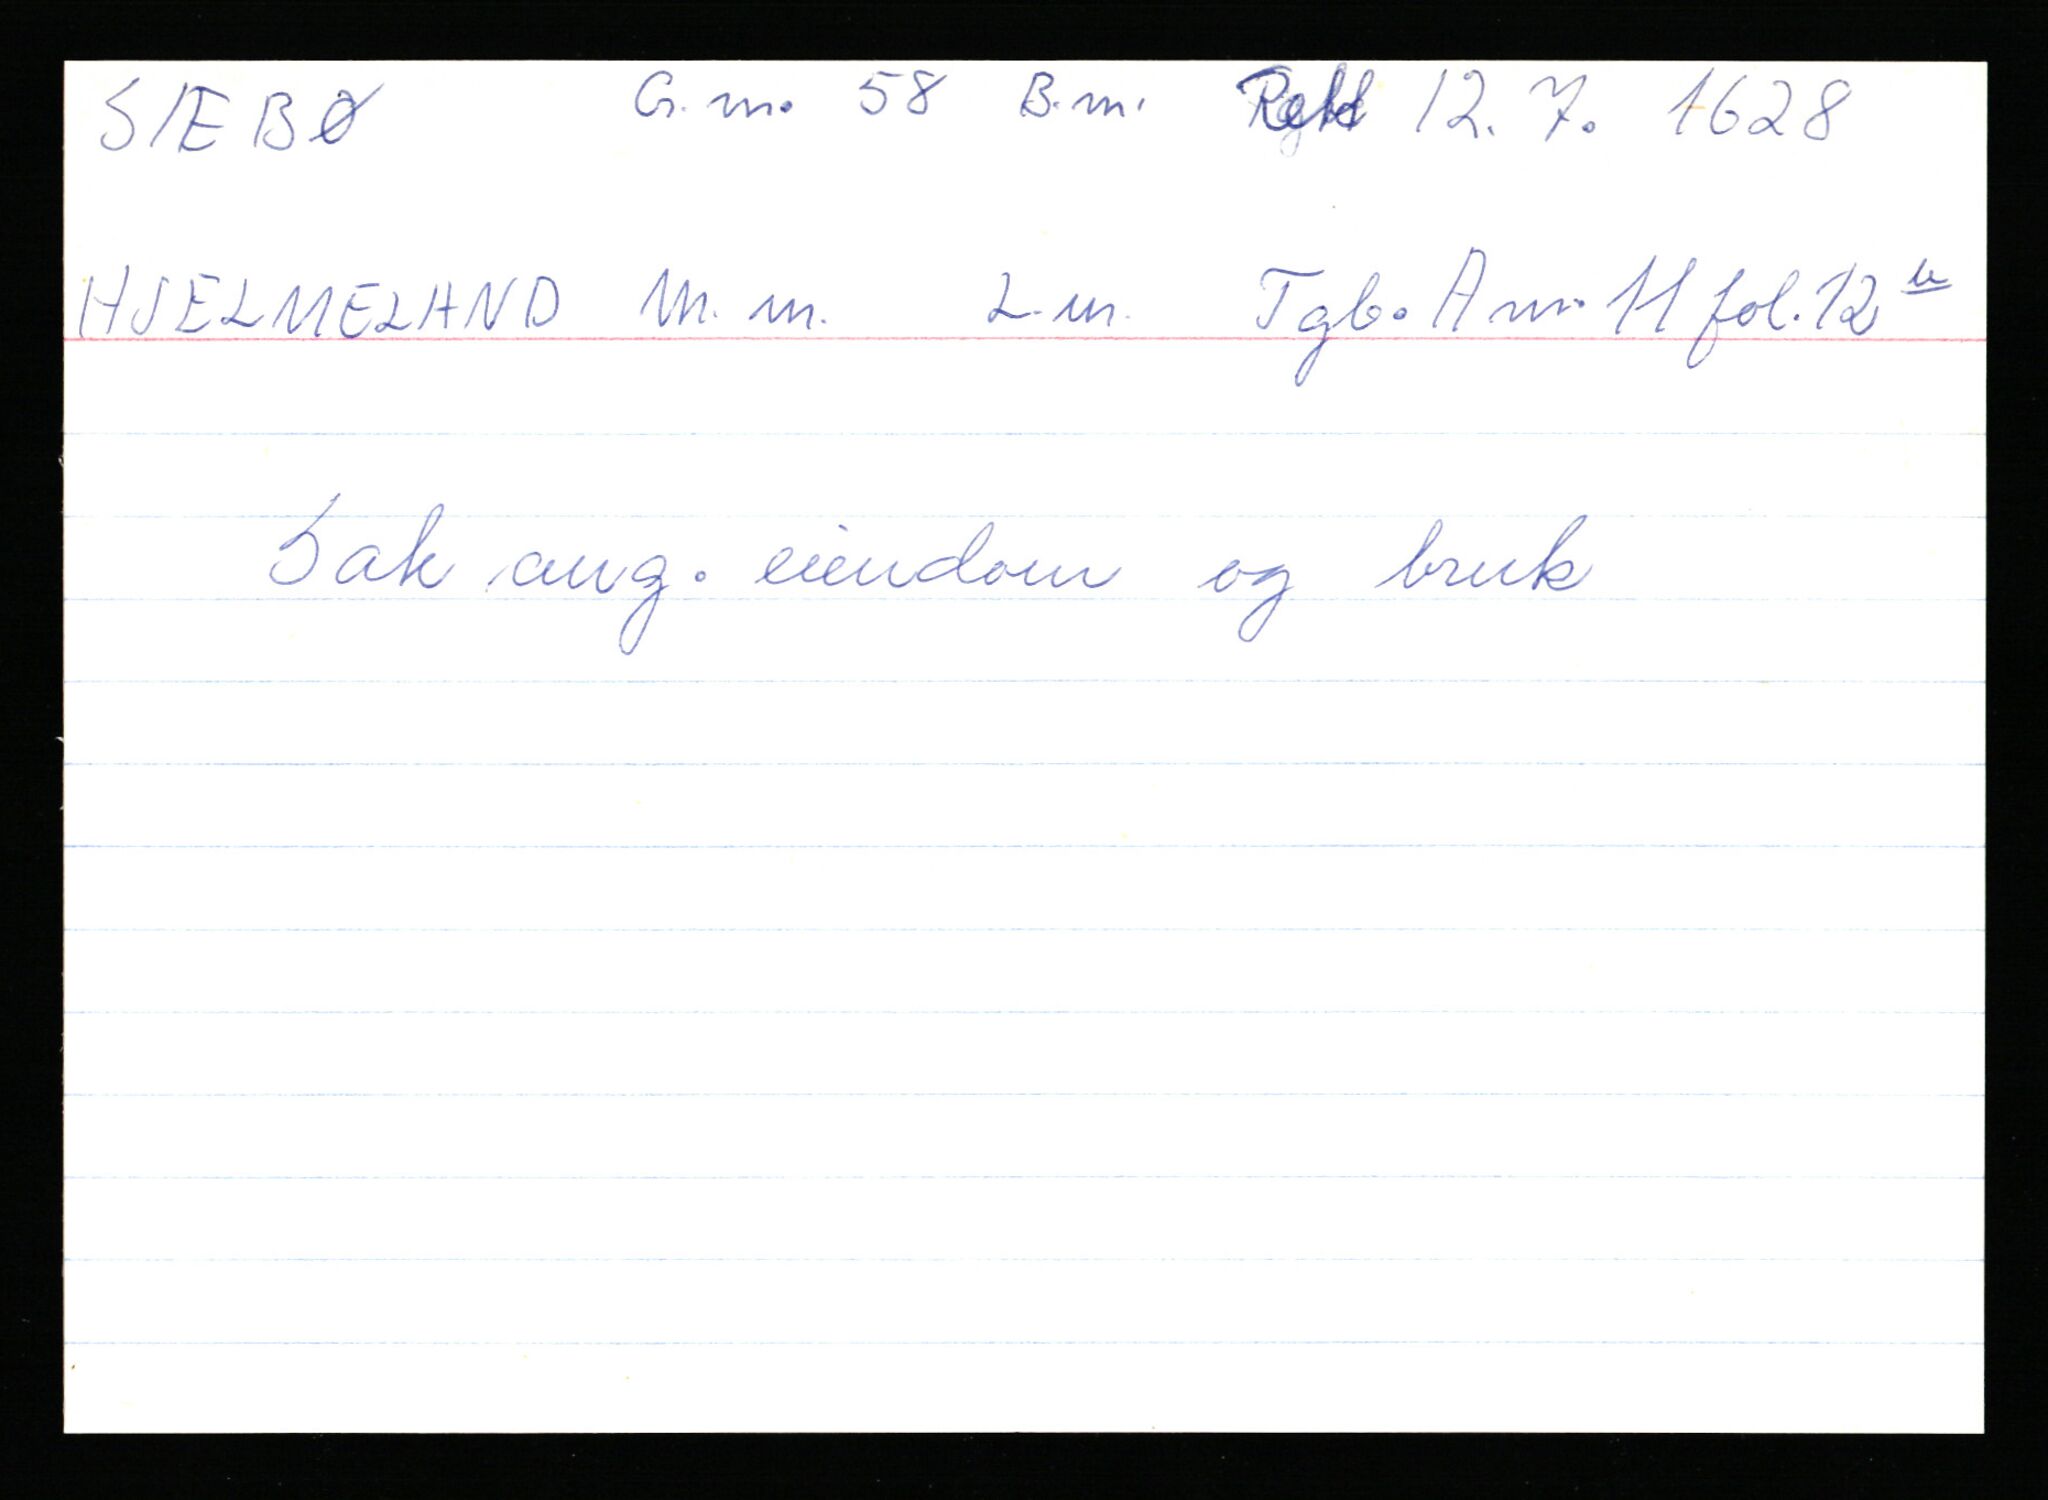 SÆBØ G.nr. 58 B.nr. 12. 7. 1628
HJELMELAND M.nr. L.nr. Tgb. A nr. 11 fol. 12
Sak ang. eiendom og bruk